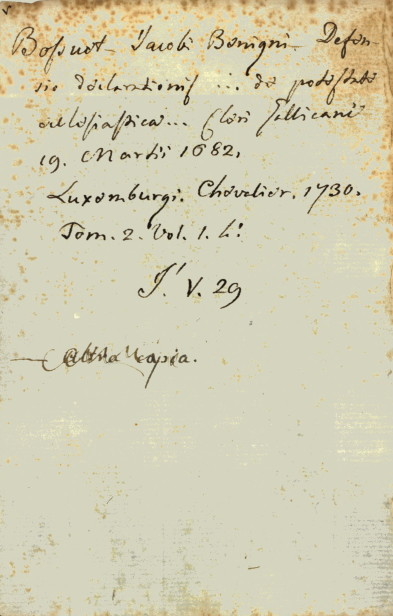 Bossuet Jacobi Benigni Defen-
sio declarationis ... de potestate
ecclesiastica... Cleri Gallicani
19. Martii 1682.
Luxemburgi. Chevalier. 1730.
Tom. 2. Vol. 1. 4:
J. V. 29
Altera Copia.